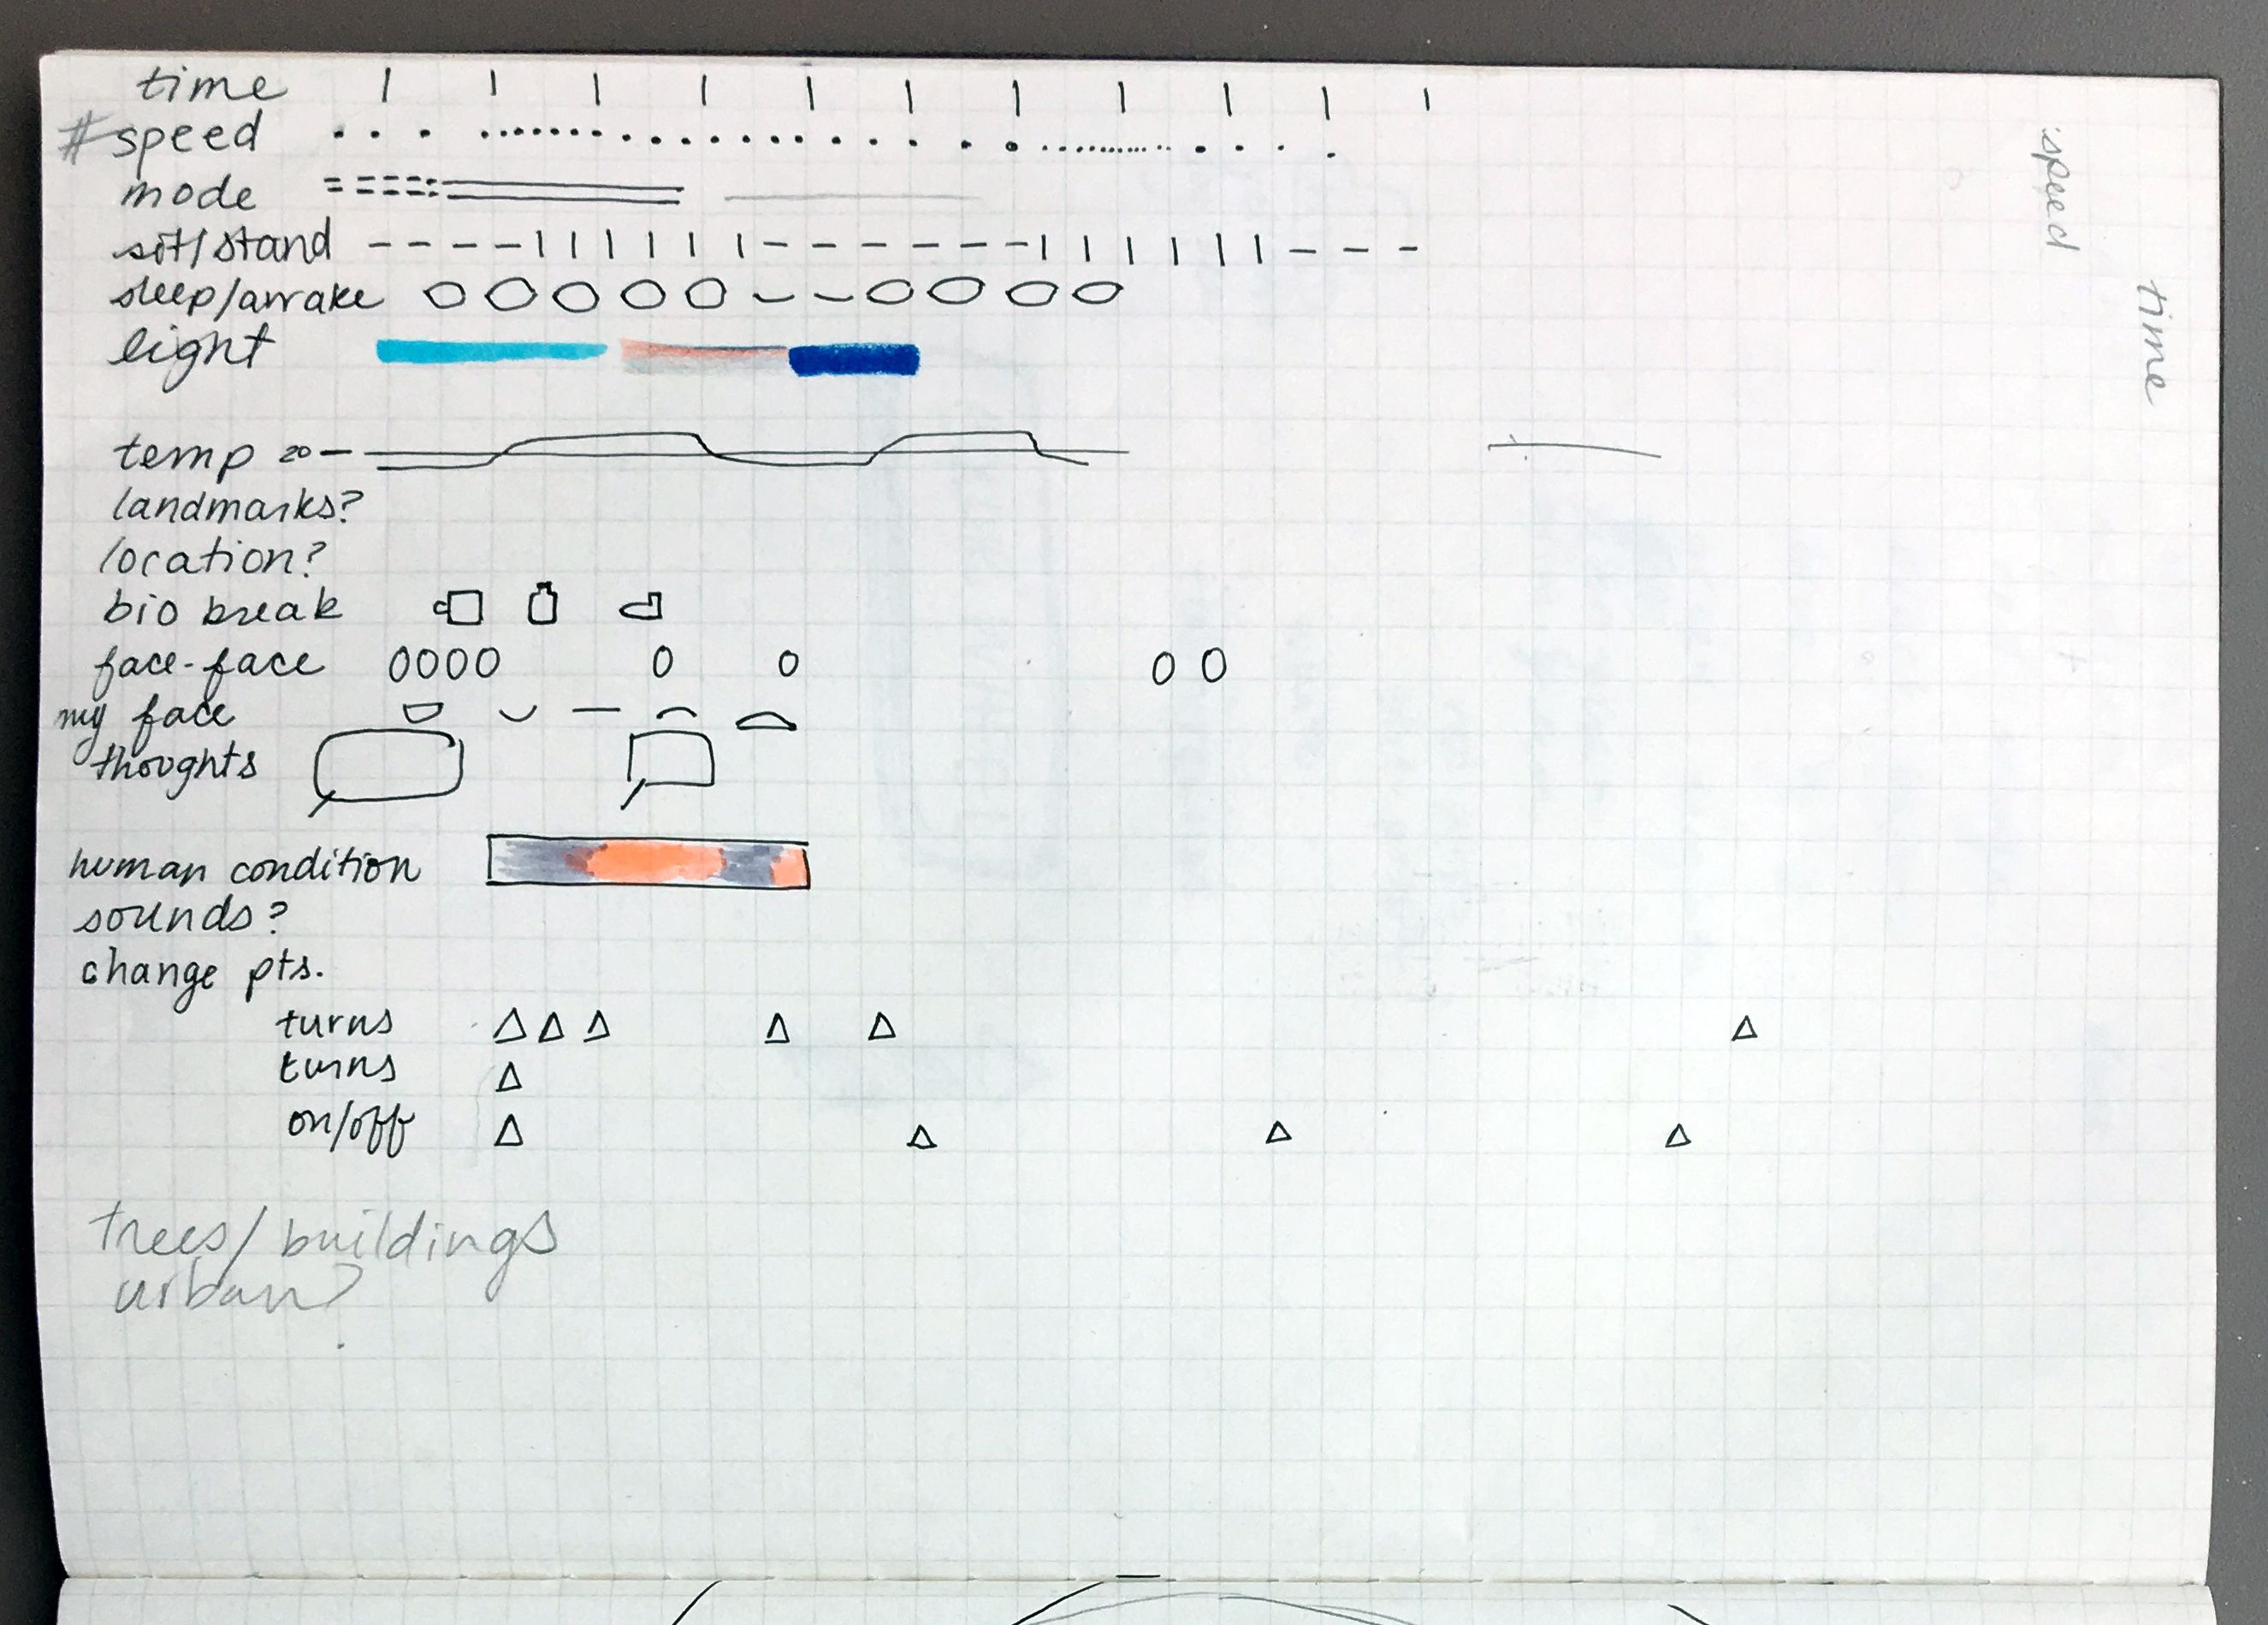 time
#speed
mode
sit/stand
sleep/awake
light
temp 20
landmarks?
location?
bio break
face-face
my face
thoughts
human condition
sounds?
change pts.
turns
turns
on/off
trees/buildings
urban?
speed
time